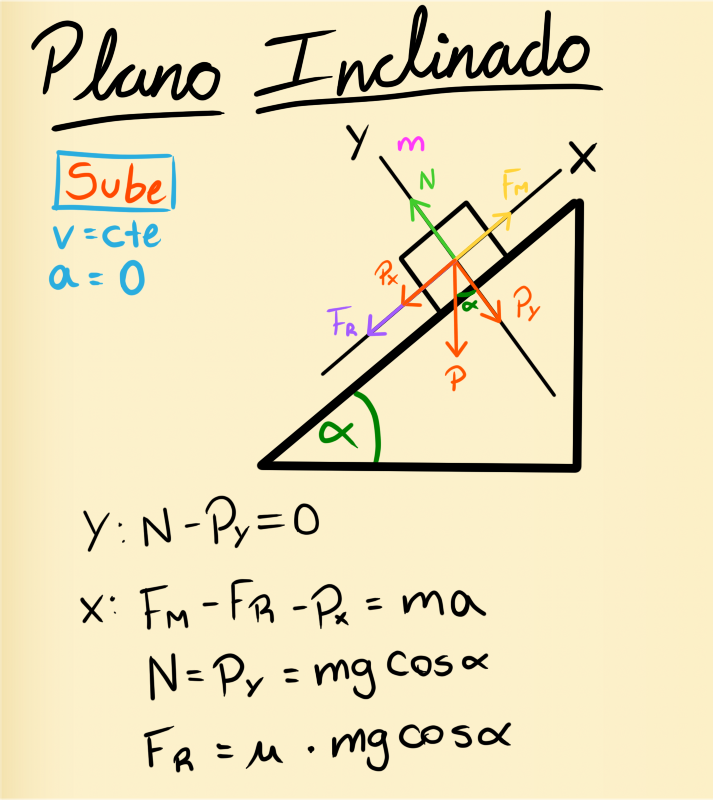 Plano Inclinado
Sube
v = cte
a = 0
Y
m
X
N
F_M
P_X
F_R
α
P_Y
P
α
Y: N - P_Y = 0
X: F_M - F_R - P_X = ma
N = P_Y = mg cos α
F_R = μ · mg cos α